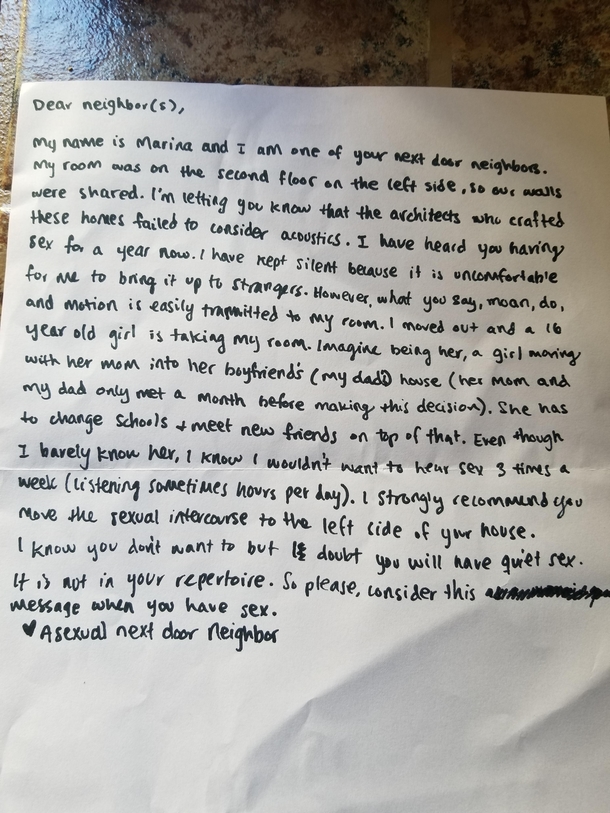 Dear neighbor(s),
My name is Marina and I am one of your next door neighbors.
My room was on the second floor on the left side, so our walls
were shared. I'm letting you know that the architects who crafted
these homes failed to consider acoustics. I have heard you having
sex for a year now. I have kept silent because it is uncomfortable
for me to bring it up to strangers. However, what you say, moan, do,
and motion is easily transmitted to my room. I moved out and a 16
year old girl is taking my room. Imagine being her, a girl moving
with her mom into her boyfriend's (my dad's) house (her mom and
my dad only met a month before making this decision). She has
to change schools + meet new friends on top of that. Even though
I barely know her, I know I wouldn't want to hear sex 3 times a
week (listening sometimes hours per day). I strongly recommend you
move the sexual intercourse to the left side of your house.
I know you don't want to but I doubt you will have quiet sex.
It is not in your repertoire. So please, consider this
message when you have sex.
♥ Asexual next door neighbor